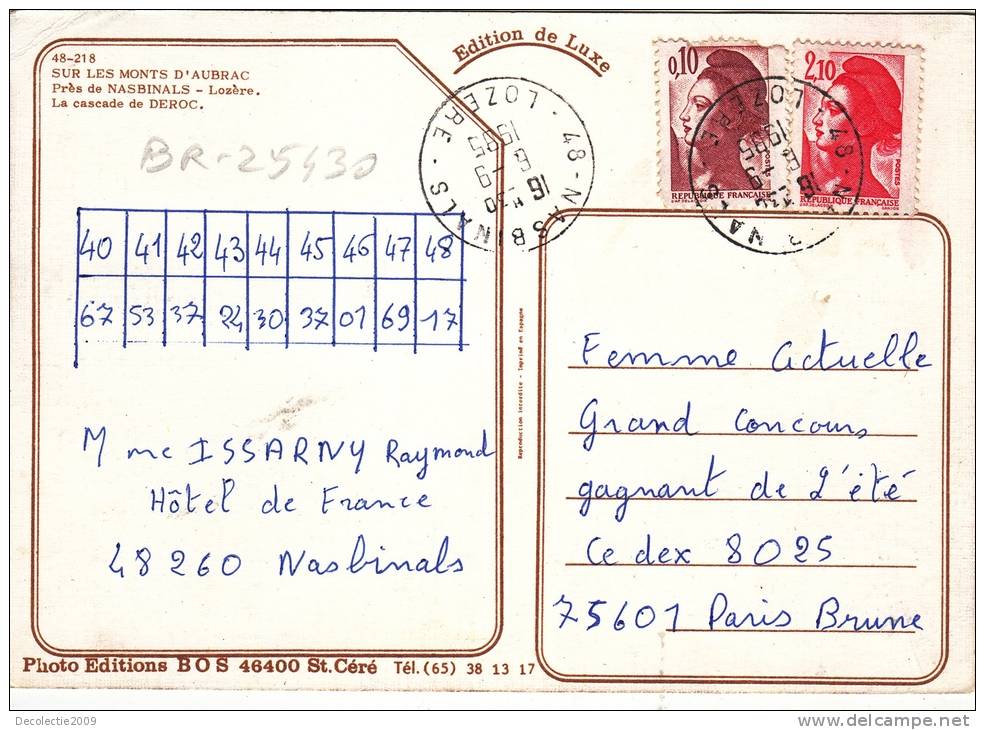 48-218
SUR LES MONTS D'AUBRAC
Près de NASBINALS - Lozère.
La cascade de DEROC.
Edition de Luxe
BR-25430
48 - NASBINALS - LOZERE
16 H 30
9 - 8
1985
0,10
POSTES
REPUBLIQUE FRANÇAISE
2,10
POSTES
REPUBLIQUE FRANÇAISE
48 - NASBINALS LOZERE
16
1985
40 41 42 43 44 45 46 47 48
67 53 37 24 30 37 01 69 17
Mme ISSARNY Raymond
Hôtel de France
48260 Nasbinals
Reproduction interdite - Imprimé en Espagne
Femme Actuelle
Grand Concours
gagnant de l'été
Cedex 8025
75601 Paris Brune
Photo Editions BOS 46400 St. Céré Tél. (65) 38 13 17
Decolectie2009
www.delcampe.net